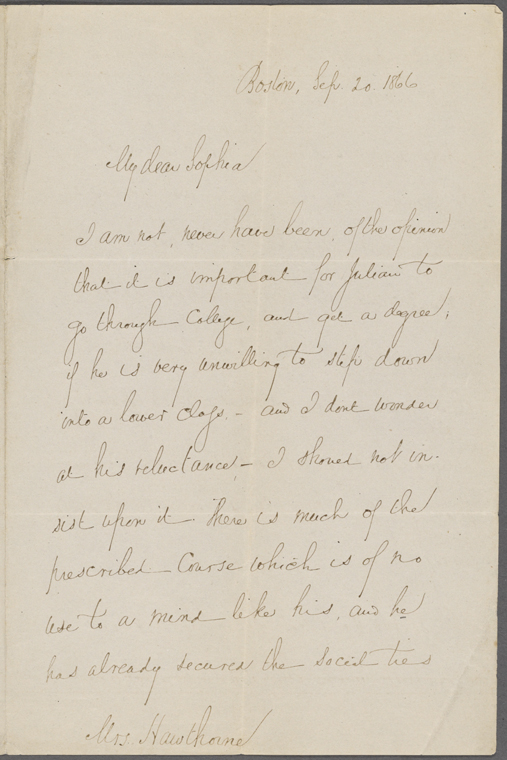 Boston, Sep. 20. 1866
My dear Sophia
I am not, never have been, of the opinion
that it is important for Julian to
go through College, and get a degree;
if he is very unwilling to step down
into a lower class. - and I dont wonder
at his reluctance - I should not in-
sist upon it. There is much of the
prescribed Course which is of no
use to a mind like his, and he
has already secured the social ties
Mrs. Hawthorne